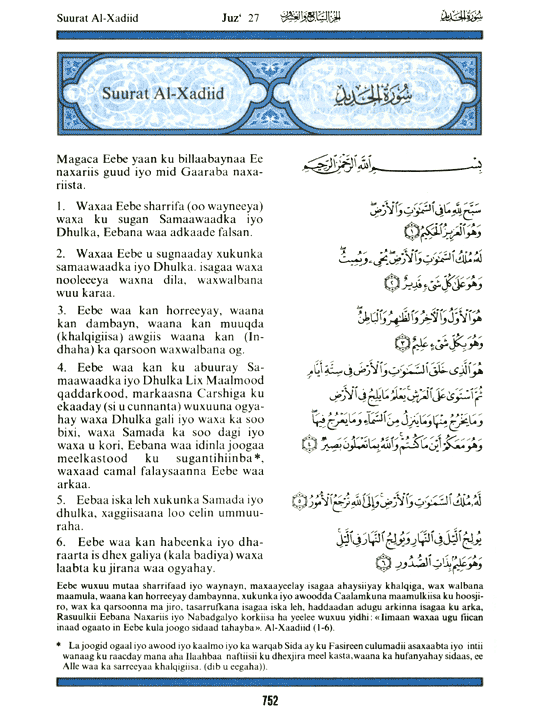 Suurat Al-Xadiid
Juz' 27
الجزء السابع والعشرون
سورة الحديد
Suurat Al-Xadiid
سورة الحديد
Magaca Eebe yaan ku billaabaynaa Ee
naxariis guud iyo mid Gaaraba naxa-
riista.
بِسْمِ اللَّهِ الرَّحْمَٰنِ الرَّحِيمِ
1. Waxaa Eebe sharrifa (oo wayneeya)
waxa ku sugan Samaawaadka iyo
Dhulka, Eebana waa adkaade falsan.
سَبَّحَ لِلَّهِ مَا فِي السَّمَٰوَٰتِ وَالْأَرْضِ
وَهُوَ الْعَزِيزُ الْحَكِيمُ ١
2. Waxaa Eebe u sugnaaday xukunka
samaawaadka iyo Dhulka. isagaa waxa
nooleeeya waxna dila, waxwalbana
wuu karaa.
لَهُ مُلْكُ السَّمَٰوَٰتِ وَالْأَرْضِ يُحْيِي وَيُمِيتُ
وَهُوَ عَلَىٰ كُلِّ شَيْءٍ قَدِيرٌ ٢
3. Eebe waa kan horreeyay, waana
kan dambayn, waana kan muuqda
(khalqigiisa) awgiis waana kan (In-
dhaha) ka qarsoon waxwalbana og.
هُوَ الْأَوَّلُ وَالْآخِرُ وَالظَّاهِرُ وَالْبَاطِنُ
وَهُوَ بِكُلِّ شَيْءٍ عَلِيمٌ ٣
4. Eebe waa kan ku abuuray Sa-
maawaadka iyo Dhulka Lix Maalmood
qaddarkood, markaasna Carshiga ku
ekaaday (si u cunnanta) wuxuuna ogya-
hay waxa Dhulka gali iyo waxa ka soo
bixi, waxa Samada ka soo dagi iyo
waxa u kori, Eebana waa idinla joogaa
meelkastood ku sugantihiinba*,
waxaad camal falaysaanna Eebe waa
arkaa.
هُوَ الَّذِي خَلَقَ السَّمَٰوَٰتِ وَالْأَرْضَ فِي سِتَّةِ أَيَّامٍ
ثُمَّ اسْتَوَىٰ عَلَى الْعَرْشِ يَعْلَمُ مَا يَلِجُ فِي الْأَرْضِ
وَمَا يَخْرُجُ مِنْهَا وَمَا يَنزِلُ مِنَ السَّمَاءِ وَمَا يَعْرُجُ فِيهَا
وَهُوَ مَعَكُمْ أَيْنَ مَا كُنتُمْ وَاللَّهُ بِمَا تَعْمَلُونَ بَصِيرٌ ٤
5. Eebaa iska leh xukunka Samada iyo
dhulka, xaggiisaana loo celin ummuu-
raha.
لَّهُ مُلْكُ السَّمَٰوَٰتِ وَالْأَرْضِ وَإِلَى اللَّهِ تُرْجَعُ الْأُمُورُ ٥
6. Eebe waa kan habeenka iyo dha-
raarta is dhex galiya (kala badiya) waxa
laabta ku jirana waa ogyahay.
يُولِجُ اللَّيْلَ فِي النَّهَارِ وَيُولِجُ النَّهَارَ فِي اللَّيْلِ
وَهُوَ عَلِيمٌ بِذَاتِ الصُّدُورِ ٦
Eebe wuxuu mutaa sharrifaad iyo waynayn, maxaayeelay isagaa ahaysiiyay khalqiga, wax walbana
maamula, waana kan horreeyay dambaynna, xukunka iyo awoodda Caalamkuna maamulkiisa ku hoosji-
ro, wax ka qarsoonna ma jiro, tasarrufkana isagaa iska leh, haddaadan adugu arkinna isagaa ku arka,
Rasuulkii Eebana Naxariis iyo Nabadgalyo korkiisa ha yeelee wuxuu yidhi: «Iimaan waxaa ugu fiican
inaad ogaato in Eebe kula joogo sidaad tahayba». Al-Xaadiid (1-6).
* La joogid ogaal iyo awood iyo kaalmo iyo ka warqab Sida ay ku Fasireen culumadii asaxaabta iyo intii
wanaag ku raacday mana aha Ilaahbaa naftiisii ku dhexjira meel kasta,waana ka hufanyahay sidaas, ee
Alle waa ka sarreeyaa khalqigiisa. (dib u eegaha)).
752